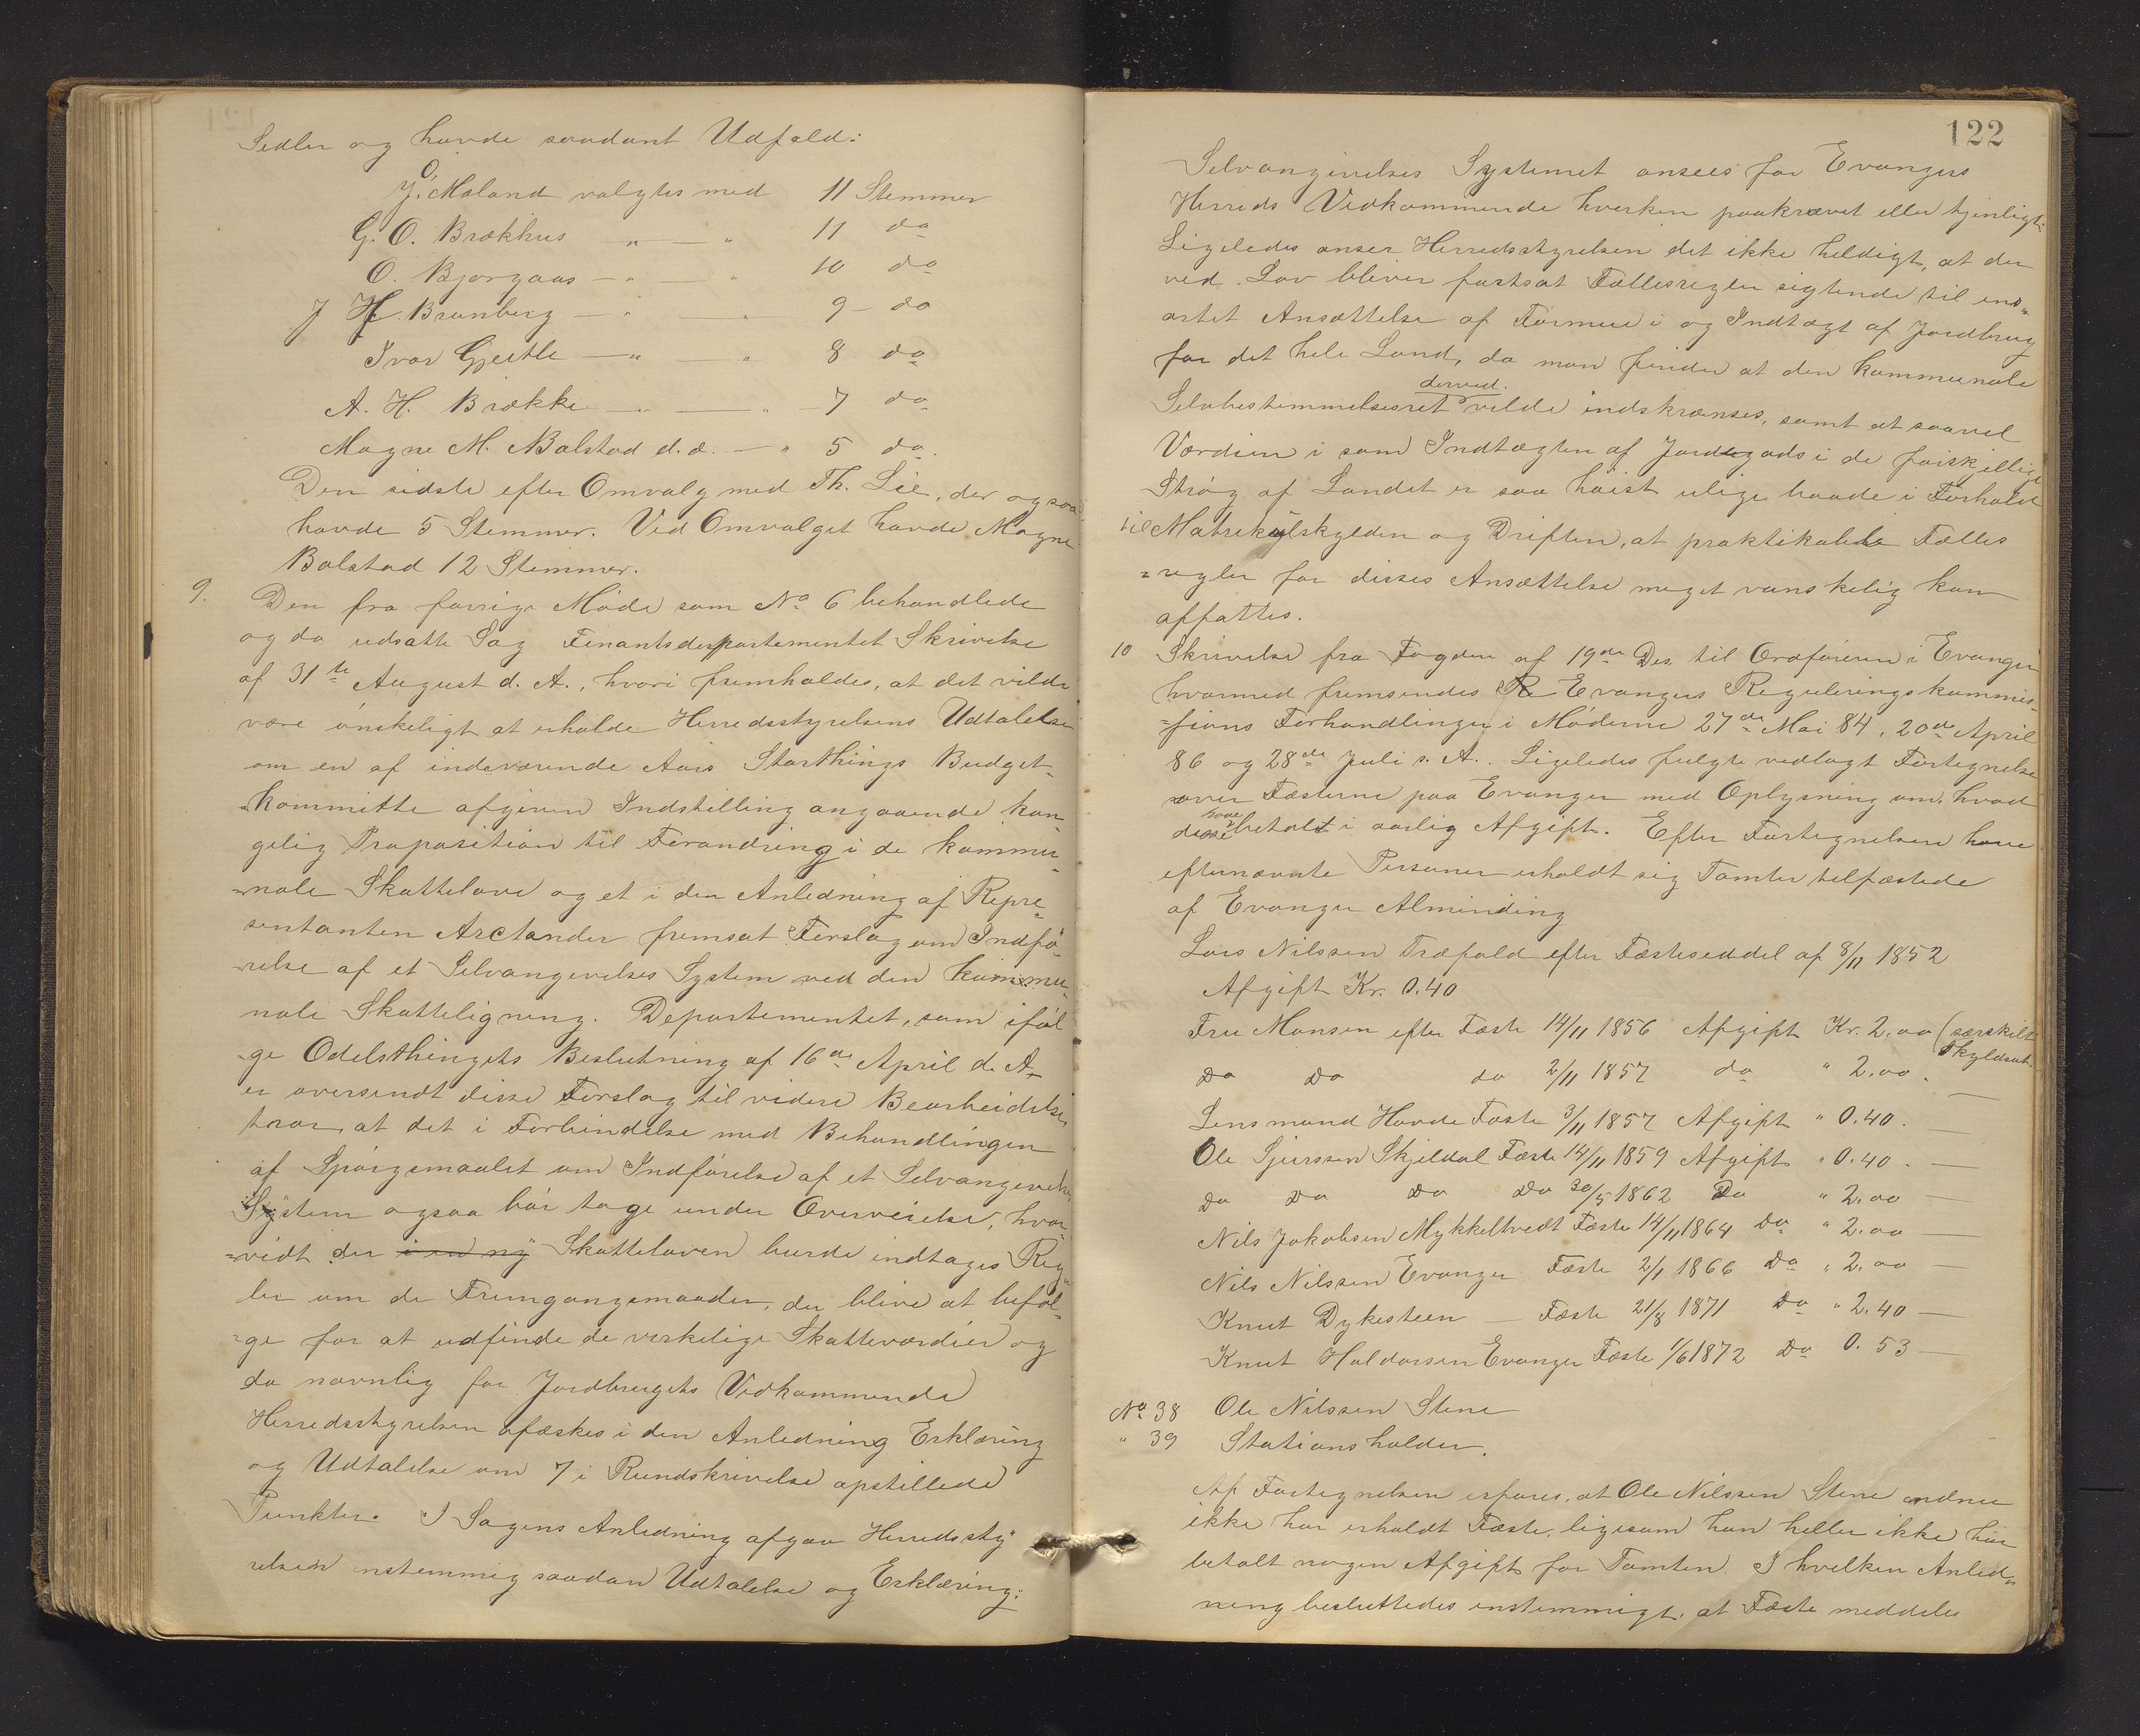 Sedler og havde saadant Udfald:
J. O. Maland valgtes med 11 Stemmer
G. O. Brækhus — " — " 11 do
O. Bjørgaas — " — " 10 do
J H. Brunberg — " — " 9 — do
Ivar Gjertle — " — " 8 do
A. H. Brække — " — " 7 do
Magne M. Bolstad d. æ. — " 5 do.
Den sidste efter Omvalg med Th. Lie, der ogsaa
havde 5 Stemmer. Ved Omvalget havde Magne
Bolstad 12 Stemmer.
9. Den fra forrige Møde som No 6 behandlede
og da udsatte Sag Finantsdepartementet Skrivelse
af 31te August d. A., hvori fremholdes, at det vilde
være ønskeligt at erholde Herredsstyrelsens Udtalelse
om en af indeværende Aars Storthings Budget-
kommitte afgiven Indstilling angaaende kon-
gelig Proposition til Forandring i de kommu-
nale Skattelove og et i den Anledning af Repre-
sentanten Arctander fremsat Forslag om Indfø-
relse af et Selvangevelses System ved den kommu-
nale Skatteligning. Departementet, som iføl-
ge Odelsthingets Beslutning af 16de April d. A.
er oversendt disse Forslag til videre Bearbeidelse,
tror, at det i Forbindelse med Behandlingen
af Spørgsmaalet om Indførelse af et Selvangevelses
System ogsaa bør tage under Overveielse, hvor-
vidt der i en ny Skatteloven burde indtages Reg-
ler om de Fremgangsmaader, der blive at beføl-
ge for at udfinde de verkelige Skatteværdier og
da navnlig for Jordbrugets Vedkommende
Herredsstyrelsen afæskes i den Anledning Erklæring
og Udtalelse om 7 i Rundskrivelse opstillede
Punkter. I Sagens Anledning afgav Herredssty-
relsen enstemmig saadan Udtalelse og Erklæring:
122
Selvangivelses Systemet ansees for Evangers
Herreds Vedkommende hverken paakrævet eller tjenligt.
Ligeledes anser Herredsstyrelsen det ikke heldigt, at der
ved Lov bliver fastsat Fællesregler sigtende til ens-
artet Ansættelse af Formue i og Indtægt af Jordbrug
for det hele Land, da man finder at den kommunale
Selvbestemmelsesret derved. vilde indskrænses, samt at saavel
Værdien i som Indtægten af Jordegods i de forskjellige
Strøg af Landet er saa høist ulige baade i Forhold
til Matrikulskylden og Driften, at praktikable Fælles
regler for disses Ansættelse meget vanskelig kan
affattes.
10 Skrivelse fra Fogden af 19de Des. til Ordføreren i Evanger
hvormed fremsendes Re Evangers Reguleringskommis-
sions Forhandlinger i Møderne 27de Mai 84, 20de April
86 og 28de Juli s. A.. Ligeledes fulgte vedlagt Fortegnelse
over Fæsterne paa Evanger med Oplysning om, hvad
disse have betalt i aarlig Afgift. Efter Fortegnelsen have
efternævnte Personer erholdt sig Tomter tilfæstede
af Evanger Alminding
Lars Nilssen Træfald efter Fæsteseddel af 8/11 1852
Afgift Kr. 0.40
Fru Monsen efter Fæste 14/11 1856 Afgift Kr. 2.00 (særskilt
Skyldsat.
Do Do do 2/11 1857 do " 2.00. —
Lensmand Havde Fæste 3/11 1857 Afgift " 0.40. —
Ole Sjurssen Skjeldal Fæste 14/11 1859 Afgift " 0.40. —
Do Do Do Do 30/5 1862 Do " 2.00 —
Nils Jakobsen Mykkeltvedt Fæste 14/11 1864 Do " 2.00 —
Nils Nilssen Evanger Fæste 2/1 1866 Do " 2.00 —
Knut Dykesteen — Fæste 21/8 1871 Do " 2.40 —
Knut Haldorsen Evanger Fæste 1/6 1872 Do 0.53 —
No 38 Ole Nilssen Stene
" 39 Stationsholder.
Af Fortegnelsen erfares, at Ole Nilssen Stene endnu
ikke har erholdt Fæste, ligesom han heller ikke har
betalt nogen Afgift for Tomten. I hvilken Anled-
ning besluttedes enstemmigt, at Fæste meddeles